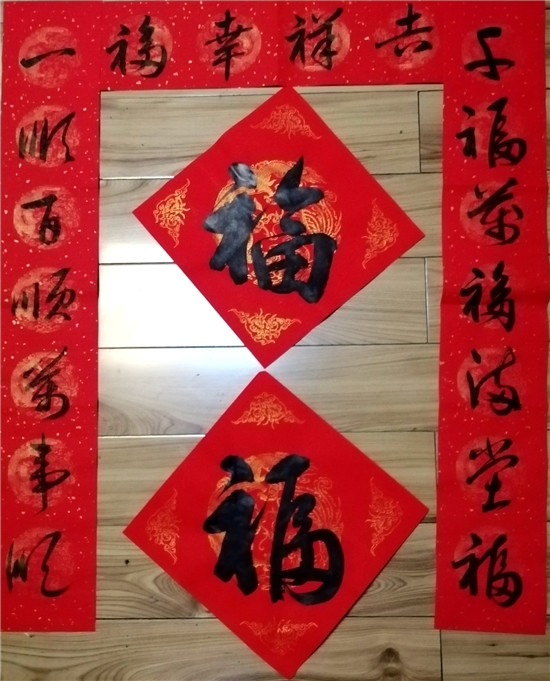 吉祥幸福
千福萬福满堂福
一顺百顺萬事顺
福
福